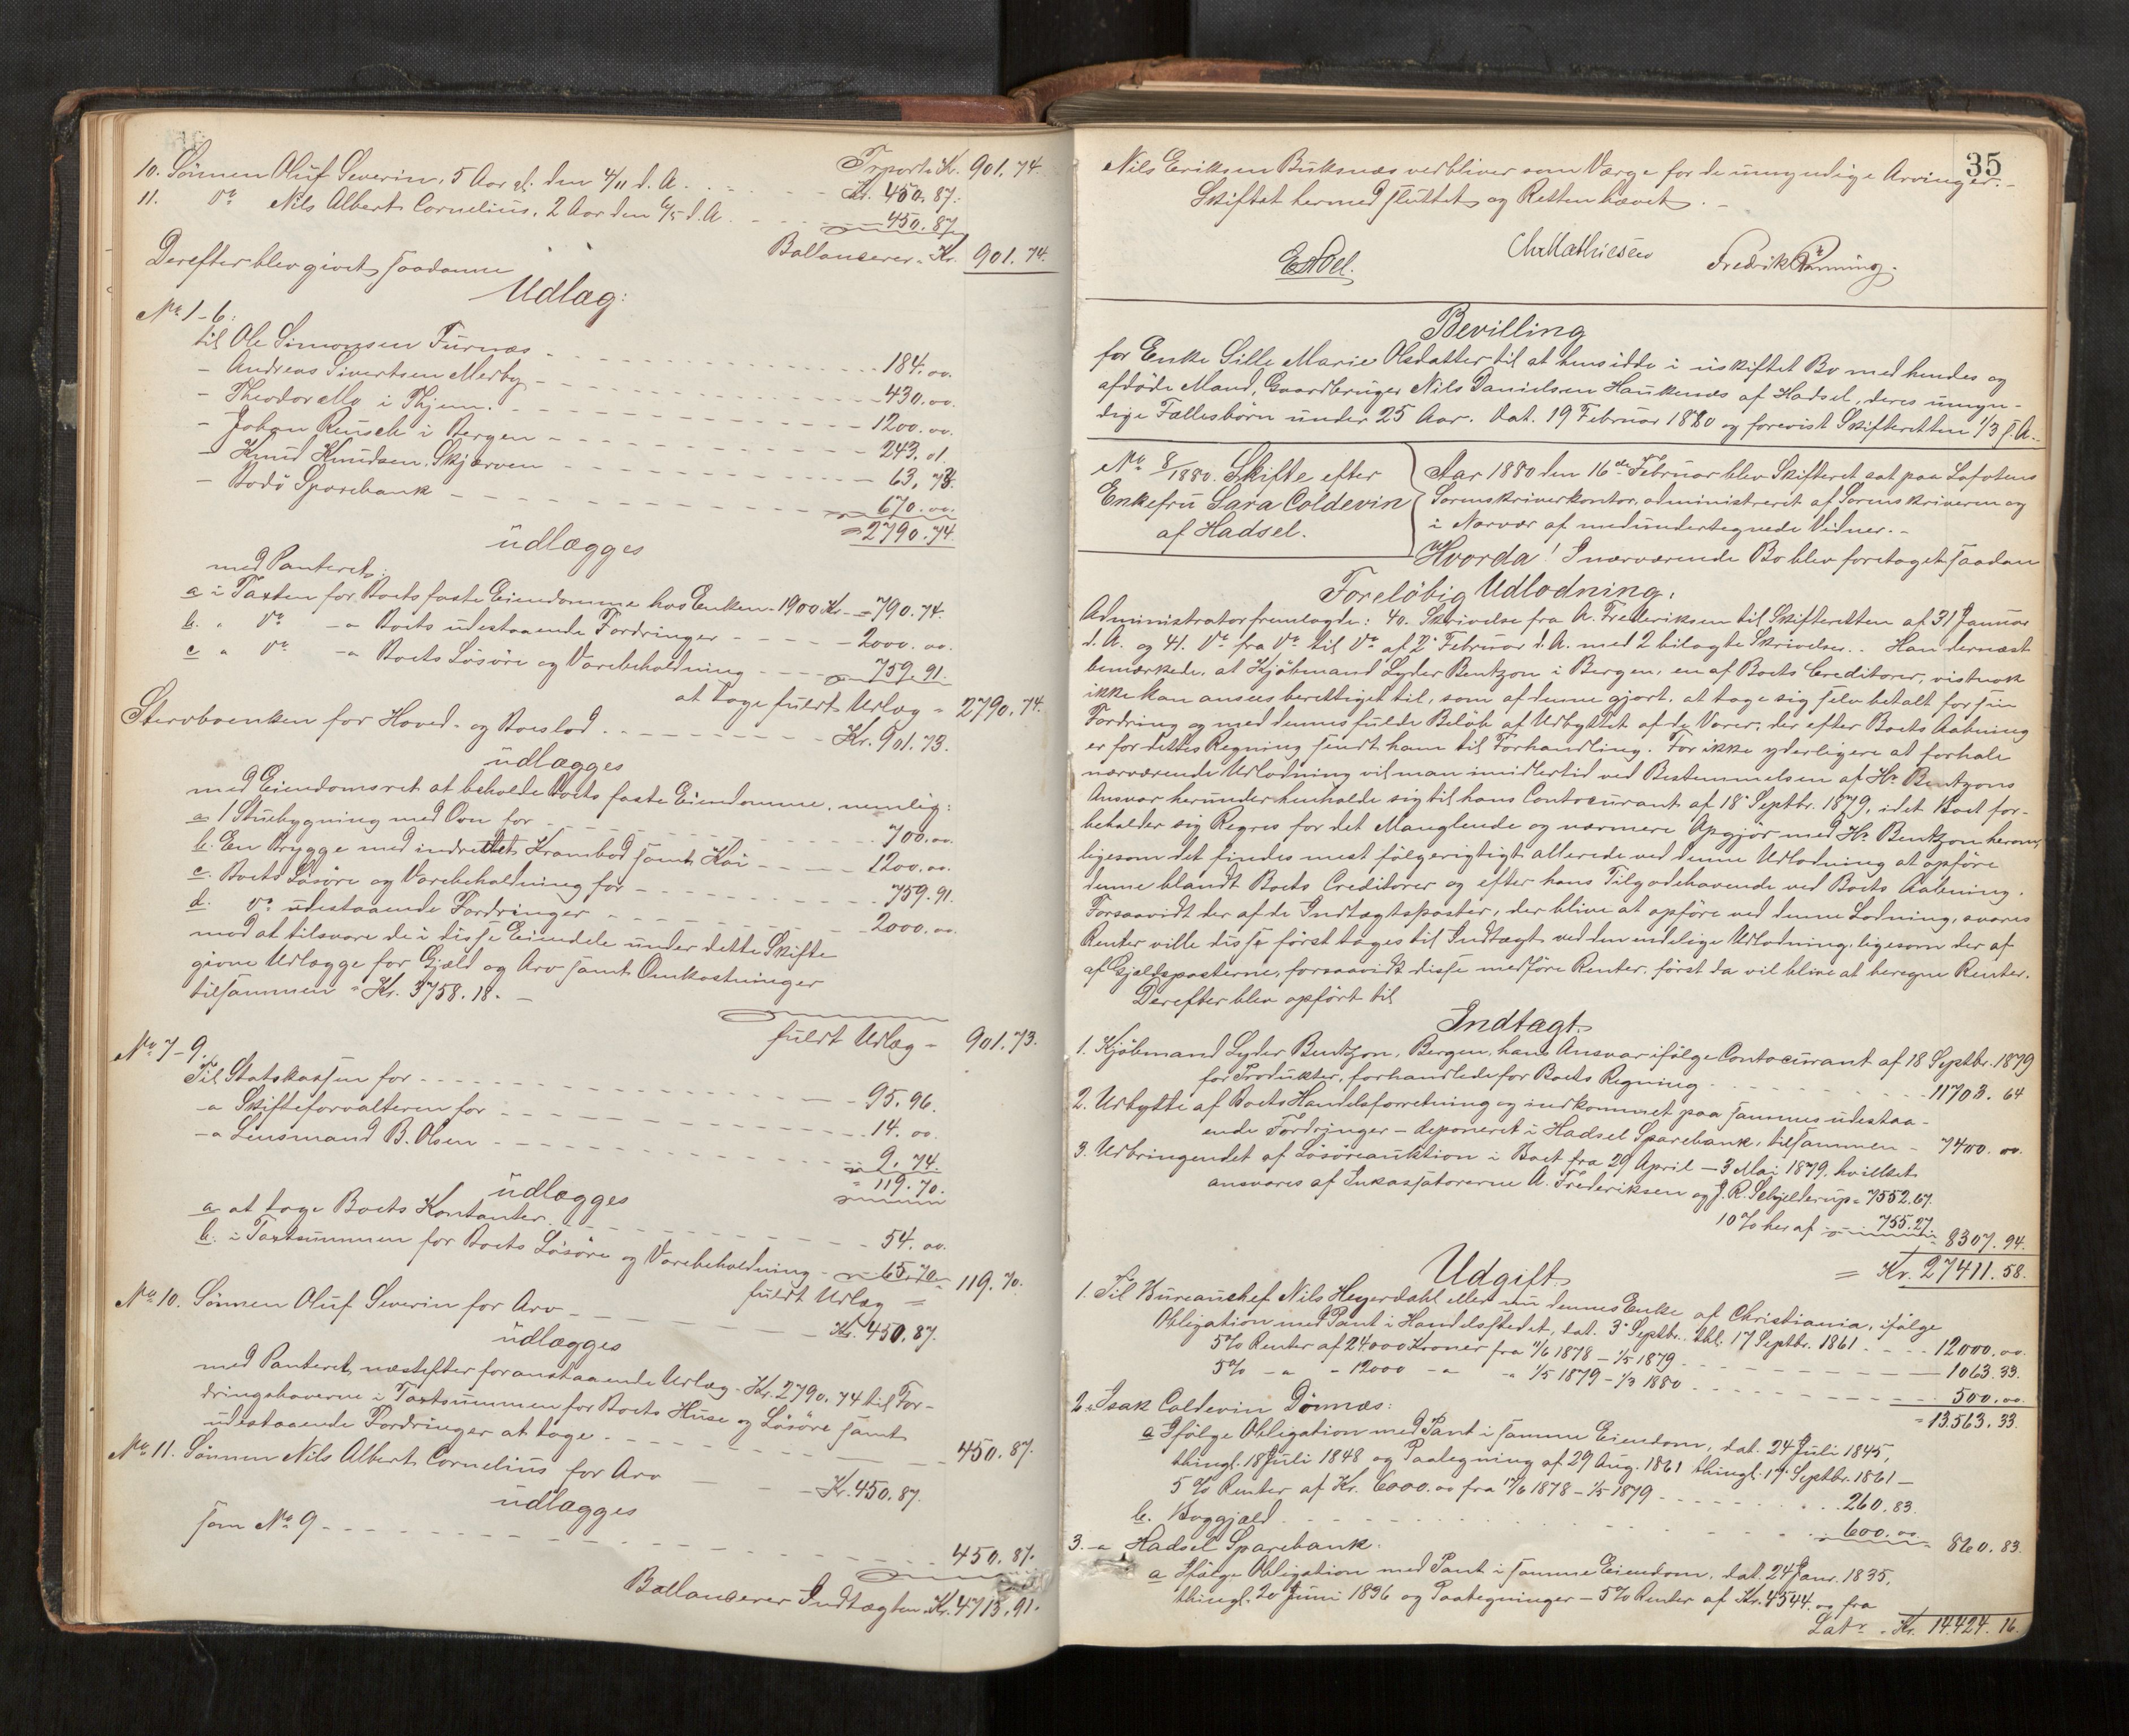 Trsport Kr. 901.74.
10. Sønnen Oluf Severin, 5 Aar gl. den 4/11 d. A. - - - Kr. 450.87.
11. Do Nils Albert Cornelius, 2 Aar den 6/5 d. A. - - - 450.87.
Ballancerer - Kr. 901.74.
Derefter blev givet saadanne
Udlæg:
No 1-6:
til Ole Simonsen Furnæs - - - 184.00.
- Andreas Sivertsen Melby - - - 430.00.
- Theodor Mo i Thjem. - - - 1200.00.
- Johan Reusch i Bergen - - - 243.01.
- Knud Knudsen, Skjærven - - - 63.73.
- Bodø Sparebank - - - 670.00.
= 2790.74.
udlægges
med Panteret:
a i Taxten for Boets faste Eiendomme hos Enken - 1900 Kr. - = 790.74.
b. " Do -" Boets udestaaende Fordringer - - - 2000.00.
c " Do -" Boets Løsøre og Varebeholdning - - - 759.91.
at tage fuldt Udlæg = 2790.74.
Stervboenken for Hoved- og Boeslod - - - Kr. 901.73.
udlægges
med Eiendomsret at beholde Boets faste Eiendomme, nemlig:
a 1 Stuebygning med Ovn for - - - 700.00.
b. En Brygge med indrettet Krambod samt Kai - - - 1200.00.
c. Boets Løsøre og Varebeholdning for - - - 759.91.
d. Do udestaaende Fordringer - - - 2000.00.
mod at tilsvare de i disse Eiendele under dette Skifte
givne Udlægge for Gjæld og Arv samt Omkostninger
tilsammen = Kr. 3758.18. -
fuldt Udlæg - 901.73.
No 7-9.
Til Statskassen for - - - 95.96.
-" Skifteforvalteren for - - - 14.00.
-" Lensmand B. Olsen - - - 9.74.
= 119.70.
udlægges
a at tage Boets Kontanter - - - 54.00.
b. i Taxtsummen for Boets Løsøre og Varebeholdning - 65.70
fuldt Udlæg = 119.70.
No 10. Sønnen Oluf Severin for Arv - - - Kr. 450.87.
udlægges
med Panteret næstefter foranstaaende Udlæg - Kr. 2790.74 til For-
dringshaverne i Taxtsummen for Boets Huse og Løsøre samt
udestaaende Fordringer at tage - - - 450.87.
No 11. Sønnen Nils Albert Cornelius for Arv - - - Kr. 450.87.
udlægges
som No 9 - - - 450.87.
Ballancerer Indtægten Kr. 4713.91.
35
Nils Eriksen Buksnæs vedbliver som Værge for de umyndige Arvinger. -
Skiftet hermed sluttet og Retten hævet. -
Chr Mathiesen Fredrik Rønning.
Bevilling
for Enke Sille Marie Olsdatter til at hensidde i uskiftet Bo med hendes og
afdøde Mand, Gaardbruger Nils Danielsen Haukenæs af Hadsel, deres umyn-
dige Fællesbørn under 25 Aar. Dat. 19 Februar 1880 og forevist Skifteretten 1/3 s. A. -
No 8/1880. Skifte efter
Enkefru Sara Coldevin
af Hadsel.
Aar 1880 den 16de Februar blev Skifteret sat paa Lofotens
Sorenskriverkontor, administreret af Sorenskriveren og
i Nærvær af medundertegnede Vidner. -
Hvorda! I nærværende Bo blev foretaget saadan
Foreløbig Udlodning.
Administrator fremlagde: 40. Skrivelse fra A. Frederiksen til Skifteretten af 31 Januar
d. A. og 41. Do fra Do til Do af 2 Februar d. A. med 2 bilagte Skrivelser. Han dernæst
bemærkede, at Kjøbmand Lyder Bentzon i Bergen, en af Boets Creditorer, vistnok
ikke kan ansees berettiget til, som af denne gjort, at tage sig selv betalt for sin
Fordring og med dennes fulde Beløb af Udbyttet af de Varer, der efter Boets Aabning
er for dettes Regning sendt ham til Forhandling. For ikke yderligere at forhale
nærværende Udlodning vil man imidlertid ved Bestemmelsen af Hr. Bentzons
Ansvar herunder henholde sig til hans Contocurant af 18 Septbr. 1879, idet Boet for-
beholder sig Regres for det Manglende og nærmere Opgjør med Hr Bentzon herom,
ligesom det findes mest følgerigtigt allerede ved denne Udlodning at opføre
denne blandt Boets Creditorer og efter hans Tilgodehavende ved Boets Aabning.
Forsaavidt der af de Indtægtsposter, der blive at opføre ved denne Lodning, svares
Renter ville disse først tages til Indtægt ved den endelige Udlodning, ligesom der af
af Gjældsposterne, forsaavidt disse medføre Renter, først da vil blive at beregne Renter.
Derefter blev opført til
Indtægt
1. Kjøbmand Lyder Bentzon, Bergen, hans Ansvar ifølge Contocurant af 18 Septbr. 1879
for Produkter, forhandlede for Boets Regning - - - 11703.64
2. Udbytte af Boets Handelsforretning og indkommet paa sammes udestaa-
ende Fordringer - deponeret i Hadsel Sparebank, tilsammen - 7400.00.
3. Udbringendet af Løsøreauktion i Boet fra 29 April - 3 Mai 1879, hvilket
ansvares af Inkassatorerne A. Frederiksen og J. R. Schjelderup = 7552.67.
10 % heraf - 755.27. = 8307.94.
= Kr. 27411.58.
Udgift
1. Til Bureauchef Nils Heyerdahl eller nu dennes Enke af Christiania, ifølge
Obligation med Pant i Handelsstedet, dat. 3 Septbr. thl. 17 Septbr. 1861 - - - 12000.00.
5 % Renter af 24000 Kroner fra 11/6 1878 - 1/5 1879 - - - 1063.33.
5 % -" - 12000 -" " 1/5 1879 - 1/3 1880 - - - 500.00.
= 13563.33.
2. " Isak Coldevin Dønnæs:
a Ifølge Obligation med Pant i samme Eiendom, dat. 24 Juli 1845,
thingl. 18 Juli 1848 og Paategning af 29 Aug. 1861 thingl. 17 Septbr. 1861 -
5 % Renter af Kr. 6000.00 fra 17/6 1878 - 1/5 1879 - - - 260.83.
b. Boggjæld - - - 600.00. = 860.83.
3. -" Hadsel Sparebank:
a Ifølge Obligation med Pant i samme Eiendom, dat. 24 Janr. 1835,
thingl. 20 Juni 1836 og Paategninger - 5 % Renter af Kr. 4544.00 fra
Latr. Kr. 14424.16.